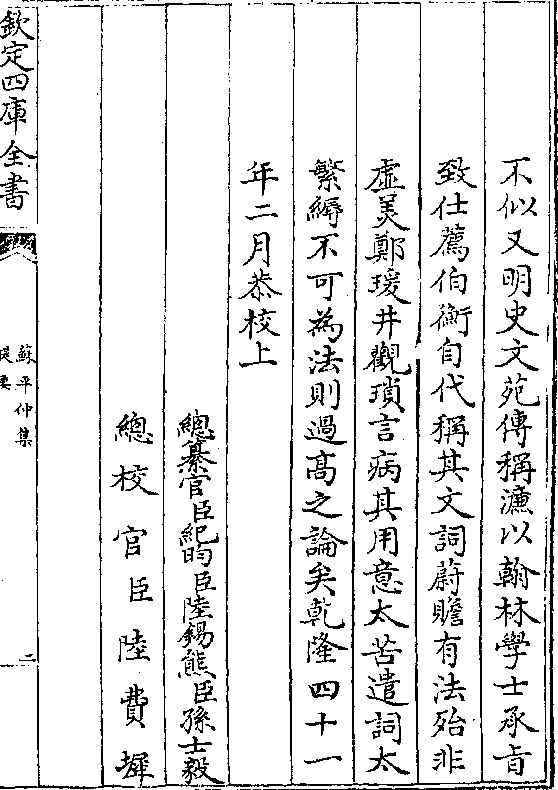 不似又明史文苑傳稱濂以翰林學士承旨
致仕薦伯衡自代稱其文詞蔚贍有法殆非
虛美鄭瑗井觀瑣言病其用意太苦遣詞太
繁縟不可為法則過髙之論矣乾隆四十一
年二月恭校上
總纂官臣紀昀臣陸錫熊臣孫士毅
總校官臣陸費墀
欽定四庫全書
蘇平仲集
提要
二